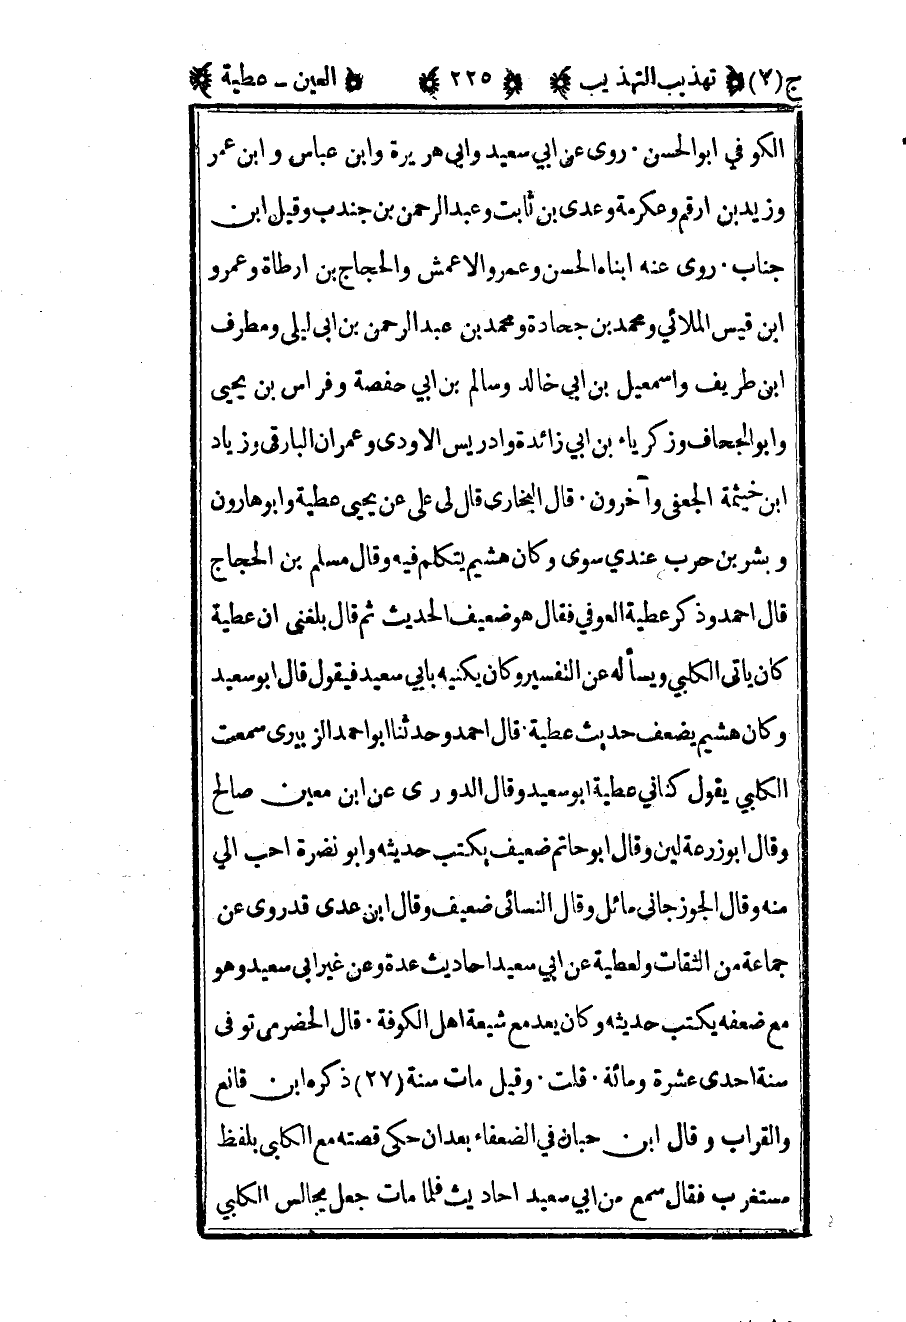 ج(٧) تهذيب التهذيب ٢٢٥ العين - عطية
الكوفي ابو الحسن · روى عن ابي سعيد وابي هريرة وابن عباس و ابن عمر
وزيد بن ارقم وعكرمة وعدى بن ثابت وعبد الرحمن بن جندب وقيل ابن
جناب · روى عنه ابناه الحسن وعمر والاعمش والحجاج بن ارطاة وعمرو
ابن قيس الملائي ومحمد بن جحادة ومحمد بن عبد الرحمن بن ابى ليلى ومطرف
ابن طريف واسمعيل بن ابي خالد وسالم بن ابي حفصة وفراس بن يحيى
وابو الجحاف وزكرياء بن ابي زائدة وادريس الاودى وعمران البارقى وزياد
ابن خيثمة الجعفى وآخرون · قال البخارى قال لى على عن يحيى عطية وابو هارون
و بشر بن حرب عندي سوى وكان هشيم يتكلم فيه وقال مسلم بن الحجاج
قال احمد وذكر عطية العوفي فقال هو ضعيف الحديث ثم قال بلغنى ان عطية
كان ياتى الكلبي ويسأله عن التفسير وكان يكنيه بابي سعيد فيقول قال ابو سعيد
وكان هشيم يضعف حديث عطية · قال احمد وحدثنا ابو احمد الزبيرى سمعت
الكلبي يقول كناني عطية ابو سعيد وقال الدورى عن ابن معين صالح
وقال ابو زرعة لين وقال ابو حاتم ضعيف يكتب حديثه وابو نضرة احب الي
منه وقال الجوزجاني مائل وقال النسائى ضعيف وقال ابن عدى قد روى عن
جماعة من الثقات ولعطية عن ابي سعيد احاديث عدة وعن غير ابى سعيد وهو
مع ضعفه يكتب حديثه وكان يعد مع شيعة اهل الكوفة · قال الحضرمى توفى
سنة احدى عشرة ومائة · قلت · وقيل مات سنة (٢٧) ذكره ابن قانع
والقراب و قال ابن حبان في الضعفاء بعد ان حكى قصته مع الكلبى بلفظ
مستغرب فقال سمع من ابي سعيد احاديث فلما مات جعل يجالس الكلبي